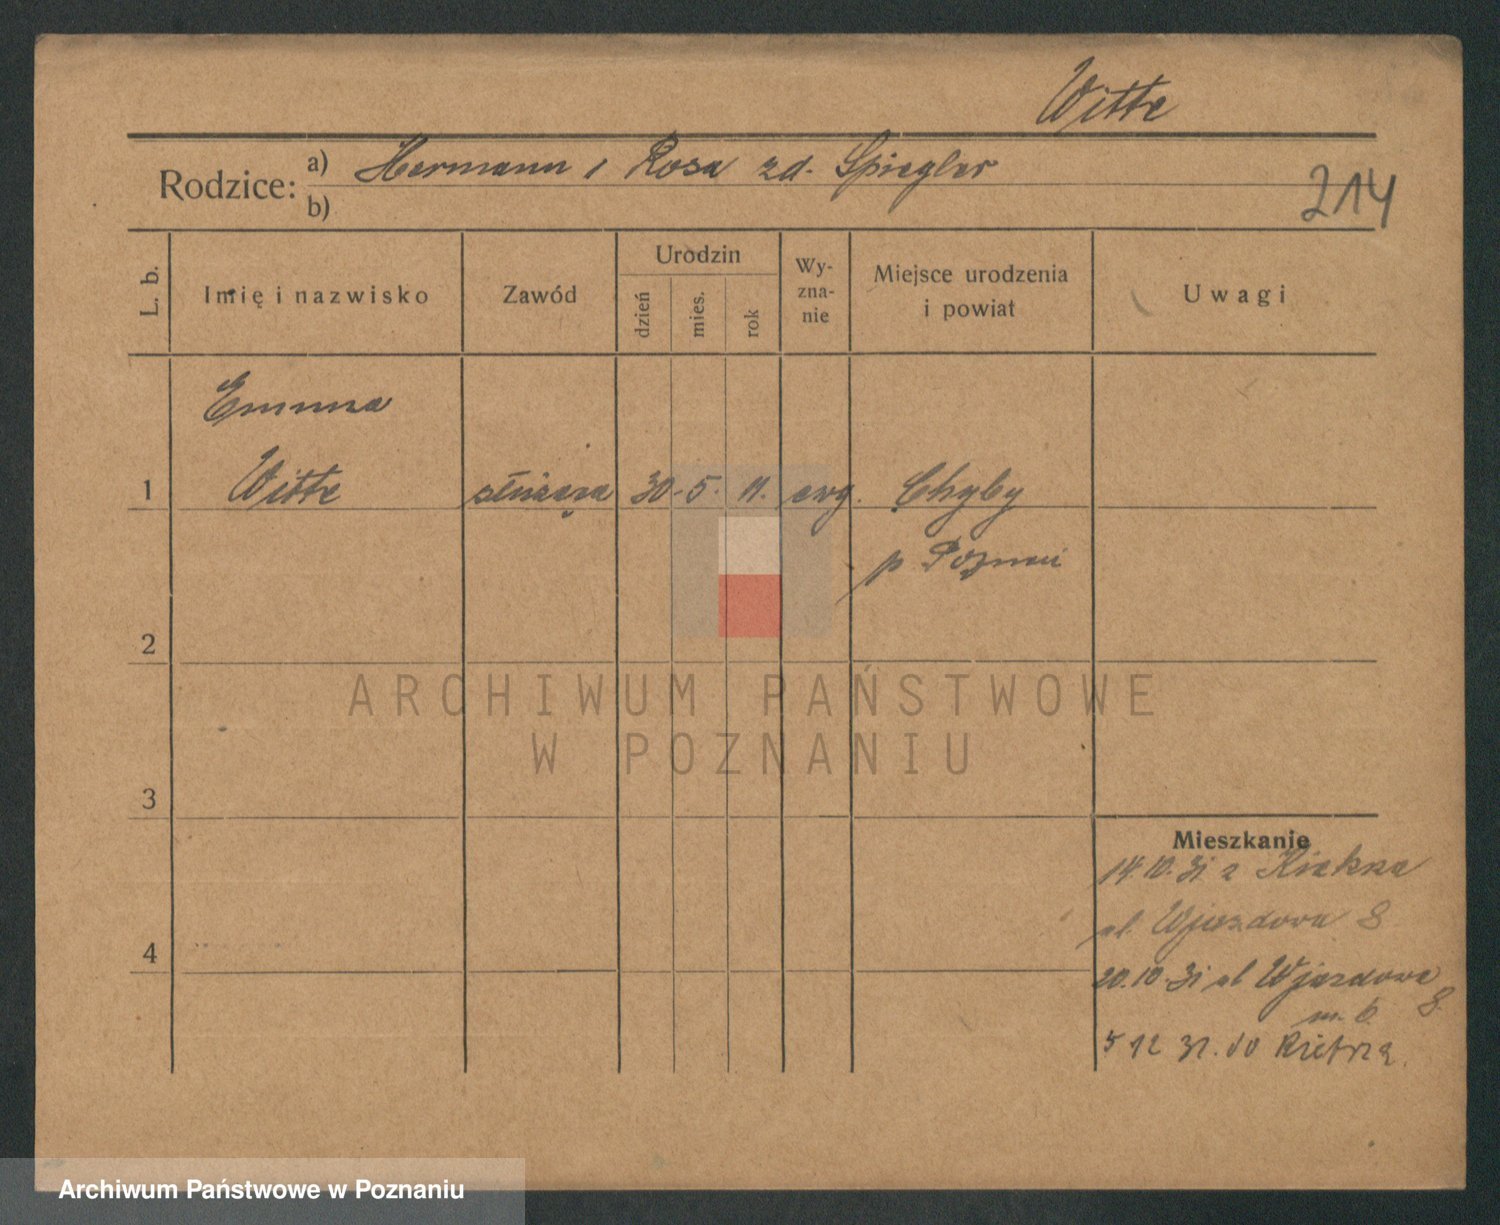 Witte
Rodzice: a) Hermann i Rosa zd. Spiegler
b)
214
L. b.
Imię i nazwisko
Zawód
Urodzin
dzień
mies.
rok
Wy-
zna-
nie
Miejsce urodzenia
i powiat
Uwagi
Emma
1 Witte służąca 30. 5. 11. ewg. Chyby
p Poznań
2
3
4
ARCHIWUM PAŃSTWOWE
W POZNANIU
Mieszkanie
14.10.31 z Kiekrza
ul. Wjazdowa 8
20.10.31 ul Wjazdowa 8
m. 6
5 12 31. do
Archiwum Państwowe w Poznaniu